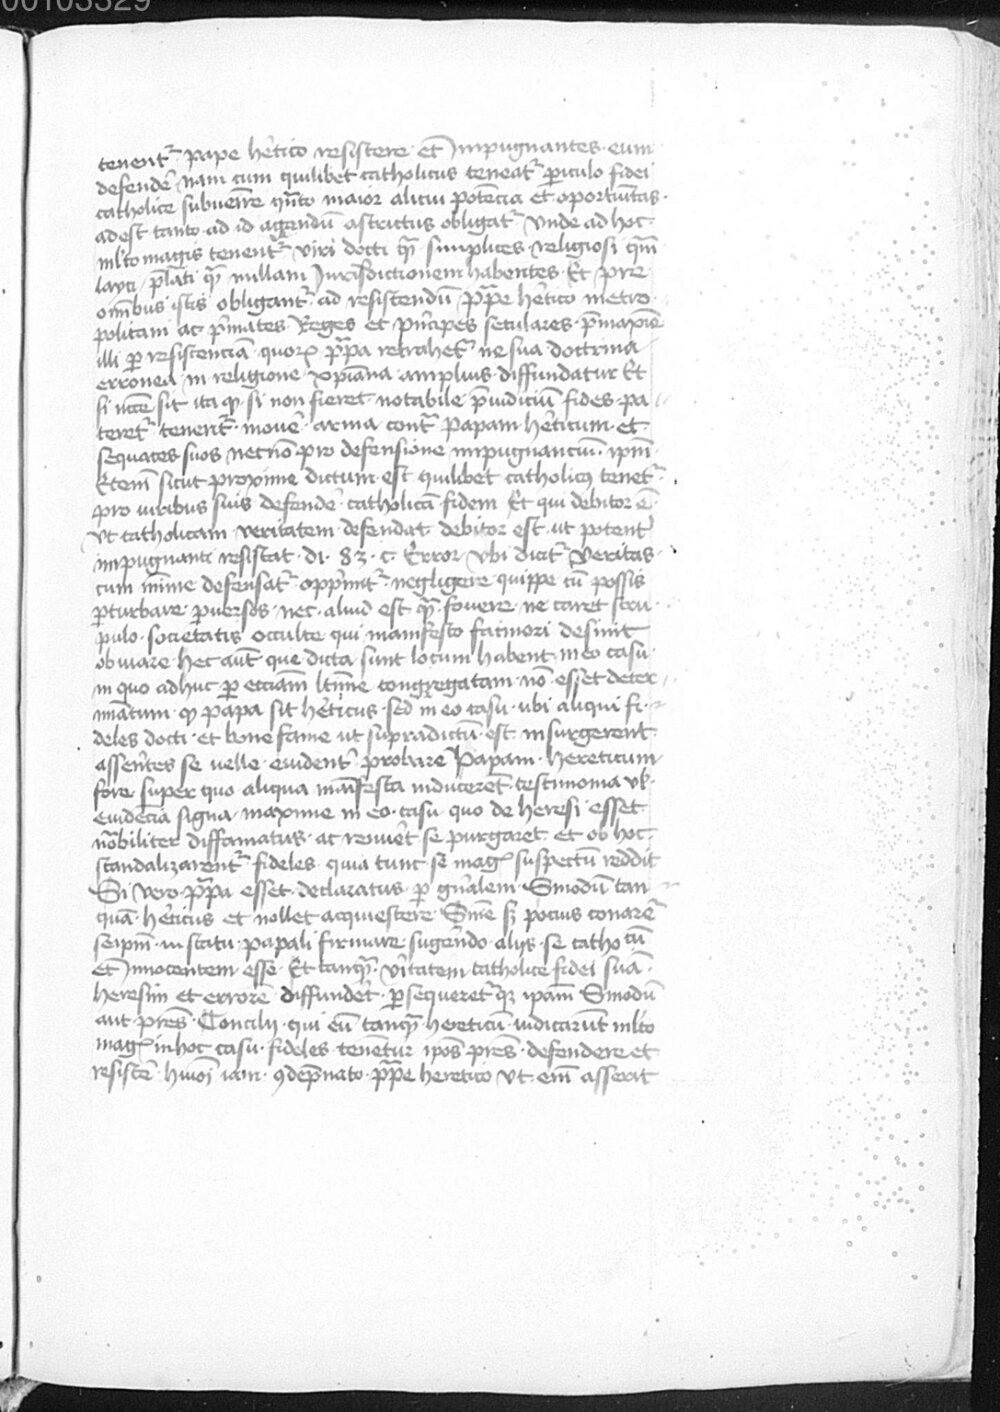 00103329
tenent᷑ pape he᷑tico resistere et Impugnantes eum
defende᷑ nam cum quilibet catholicus teneat᷑ p̲iculo fidei
catholice subuenire qn̅to maior alicui potencia et oportunitas
adest tanto ad id agendu̅ astrictus obligat᷑ Vnde ad hoc
ml̅to magis tenent᷑ viri docti qua̅ simplices religiosi qua̅
layci p̅lati qua̅ nullam Iurisdictionem habentes Et pre
om̅ibus istis obligant᷑ ad resistendu̅ p̅pe he᷑tico metro
politani ac p̅mates Reges et p̅ncipes seculares p̅maxi̅e
illi p̲ resistencia̅ quor̅ p̅pa retrahet᷑ ne sua doctrina
erronea in religione xp̅iana amplius diffundatur Et
si nc̅c̅e sit ita q̲ si non fieret notabile p̅iudiciu̅ fides pa
teret᷑ tenent᷑ moue᷑ arma cont᷑ Papam he᷑ticum et
sequaces suos necno̅ pro defensione inpugnanciu̅ ip̅m
Etem̅ sicut proxime dictum est quilibet catholicus tenet᷑
pro viribus suis defende᷑ catholica̅ fidem Et qui debitor e̅
vt catholicam veritatem defendat debitor est ut potent᷑
inpugnanti resistat di 83 c Error vbi dicit᷑ Veritas
cum mi̅me defensat᷑ opp̅mit᷑ negligere quippe cu̅ possis
p̲turbare p̲uersos nec aliud est qua̅ fouere ne caret scru
pulo societatis occulte qui manifesto facinori desinit
obuiare hec aut̅ que dicta sunt locum habent in eo casu
in quo adhuc p̲ ecc̅iam l̅ti̅me congregatam no̅ esset deter
minatum q̲ papa sit he᷑ticus sed in eo casu ubi aliqui fi
deles docti et bone fame ut supradictu̅ est insurgerent
asserentes se uelle euident᷑ probare Papam hereticum
fore super quo aliqua ma̅ifesta inducerent testimonia vl̅
euidencia signa maxime in eo casu quo de heresi esset
no̅biliter diffamatus ac renuet se purgaret et ob hoc
scandalizarent᷑ fideles quia tunc se mag̅ suspectu̅ reddit
Si vero p̅pa esset declaratus p̲ gn̅alem Sinodu̅ tan
qua̅ he᷑ticus et nollet acquiescere Sn̅ie s̅ pocius conare᷑
seip̅m in statu papali firmare sugerendo alijs se catholicu̅
et Innocentem esse Et tanqua̅ v᷑itatem catholice fidei sua̅
heresim et errore̅ diffundet p̲sequeret᷑ q̲ ipam̅ Sinodu̅
aut pres̅ Concilij qui eu̅ tanqua̅ hereticu̅ iudicaru̅t ml̅to
mag̅ in hoc casu fideles tenentur ipos̅ pres̅ defendere et
resiste᷑ hui̅oi̅ iam ꝯdepnato p̅pe heretico vt em̅ asserit